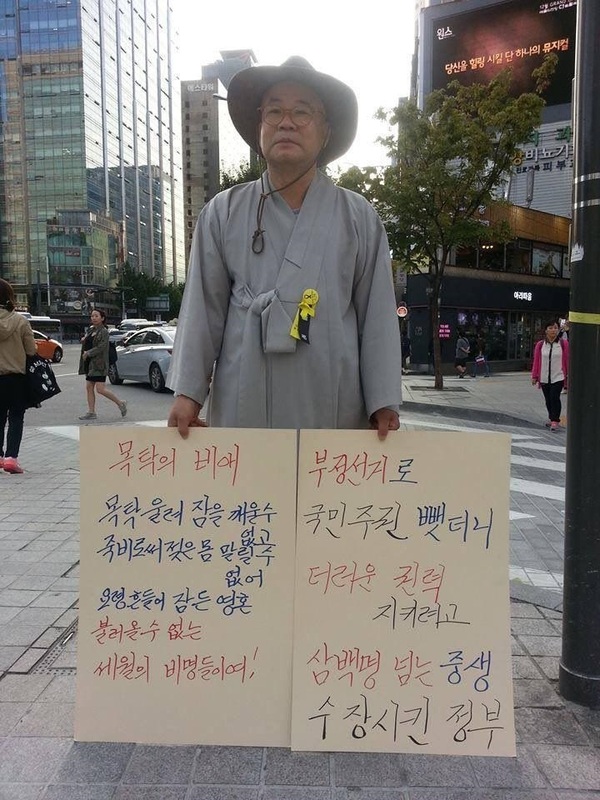 윈스
당신을 힐링 시킬 단 하나의 뮤지컬
에스타워
비뇨기
피부
아리따움
목탁의 비애
목탁 울려 잠을 깨울수
없고
죽비로써 젖은 몸 말릴 수
없어
요령 흔들어 잠든 영혼
불러올수 없는
세월의 비명들이여!
부정선거로
국민주권 뺏더니
더러운 권력
지키려고
삼백명 넘는 중생
수장시킨 정부